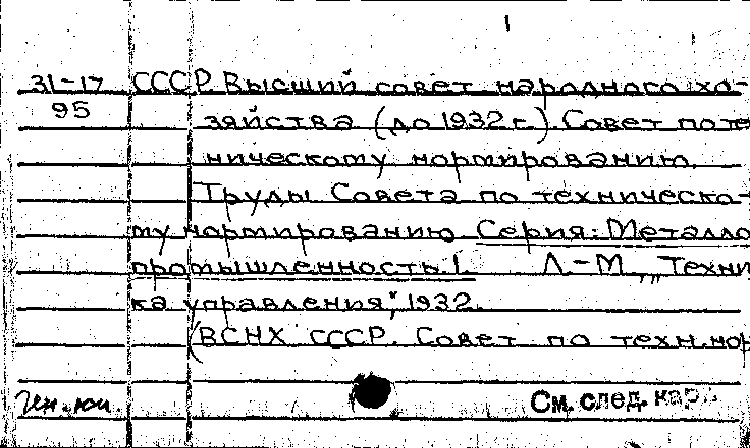 1
31-17 СССР. Высший совет народного хо-
95 зяйства (до 1932 г.). Совет по те
ническому нормированию.
Труды Совета по техническо-
му нормированию. Серия: Металло
промышленность. 1. Л.-М., „Техни
ка управления", 1932.
(ВСНХ СССР. Совет по техн. нор
См. след. карт.